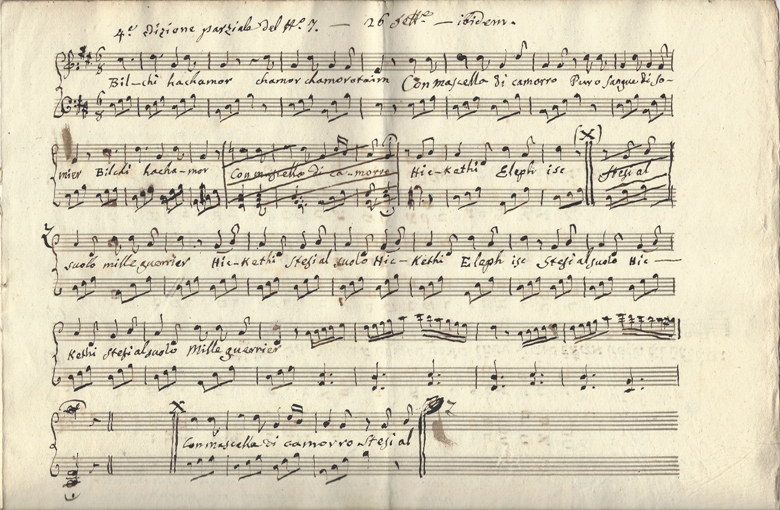 4.ª dizione parziale del Nº. 7. — 26 Sett.e — ibidem.
Bil-chi hachamor chamor chamorotaim Con mascella di camorro Puro sangue di so-
mier Bilchi hacha-mor Con mascella di ca-morro Hic-Kethi Eleph isc Stesi al
suolo mille guerrier Hic-Kethi Stesi al suolo Hic-Kethi Eleph isc Stesi al suolo Hic —
Kethi Stesi al suolo Mille guerrier
Con mascella di camorro Stesi al